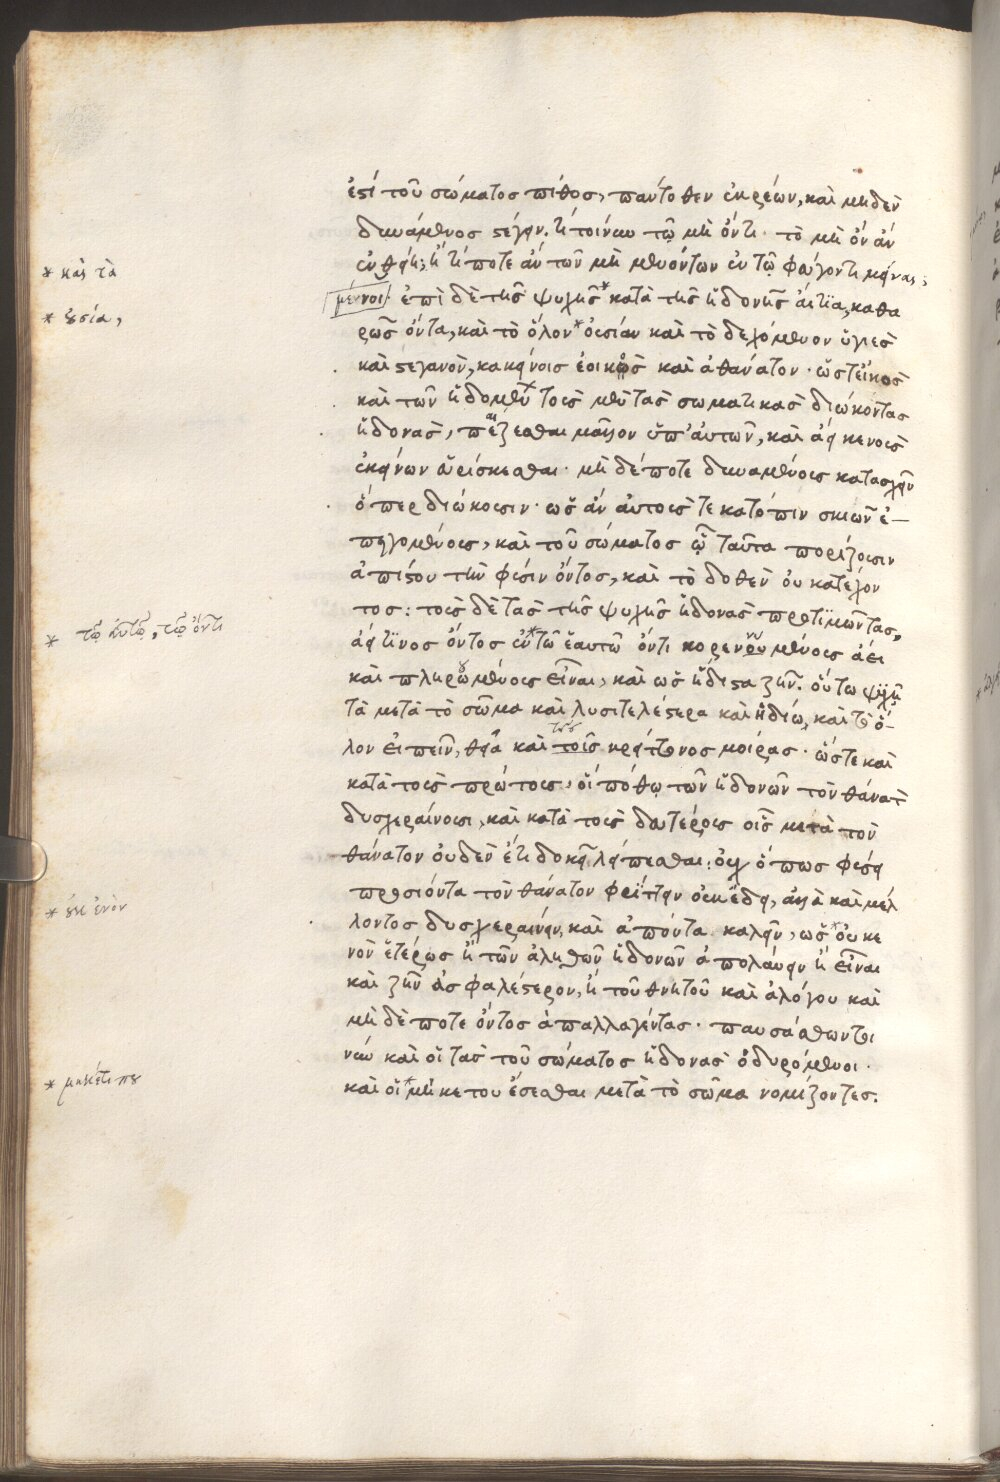 ἐστί τοῦ σώματος πίθος, παντόθεν ἐκρέων, καὶ μηδὲν
δυνάμενος στέγειν. τί τοίνυν τῷ μὴ ὄντι τὸ μὴ ὂν ἂν
ἐνθείη; ἢ τί ποτε ἂν τῶν μὴ μενόντων ἐν τῷ φεύγοντι μεῖναι;
μένοι ἐπὶ δὲ τῆς ψυχῆς * κατὰ τῆς ἡδονῆς αἴτια, καθα
* καὶ τὰ
ρῶς ὄντα, καὶ τὸ ὅλον * οὐσίαν καὶ τὸ δεχόμενον ὑγιὲς
* οὐσία,
καὶ στεγανὸν, κακείνοις ἐοικὸς καὶ ἀθάνατον. ὥστ εἰκὸς
καὶ τῶν ἡδομένων τοὺς μὲν τὰς σωματικὰς διώκοντας
ἡδονὰς, παίζεσθαι μᾶλλον ὑπ' αὐτῶν, καὶ ἀεὶ κενοὺς
ἐκείνων εὑρίσκεσθαι. μηδέποτε δυναμένους κατασχεῖν
ὅπερ διώκουσιν. ὡς ἂν αὐτούς τε κατόπιν σκιῶν ἐ-
πειγομένους, καὶ τοῦ σώματος ᾧ ταῦτα πορίζουσιν
ἀπίστου τὴν φύσιν ὄντος, καὶ τὸ δοθὲν οὐ κατέχον
τος: τοὺς δὲ τὰς τῆς ψυχῆς ἡδονὰς προτιμῶντας,
ἀεί τινος ὄντος ἐν * τῶ ἑαυτῶ ὄντι κορεννυμένους ἀεὶ
* τῷ αὐτῷ, τῷ ὄντι
καὶ πληρουμένους εἶναι, καὶ ὡς ἥδιστα ζῆν. οὕτω ψυχῇ
τὰ μετὰ τὸ σῶμα καὶ λυσιτελέστερα καὶ ἡδίω, καὶ τὸ ὅ-
λον εἰπεῖν, θεῖα καὶ τοῖς κρείττονος μοίρας. ὥστε καὶ
κατὰ τοὺς πρώτους, οἳ πόθῳ τῶν ἡδονῶν τὸν θάνατον
δυσχεραίνουσι, καὶ κατὰ τοὺς δευτέρους οἷς μετὰ τὸν
θάνατον οὐδὲν ἔτι δοκεῖ λείπεσθαι: οὐχ ὅπως φύσει
προσιόντα τὸν θάνατον φρίττειν οὐκ ἔδει, ἀλλὰ καὶ μέλ
λοντος δυσχεραίνειν, καὶ ἀπόντα καλεῖν, ὡς * οὐ κε
* οὐκ ἐνὸν
νὸν ἑτέρως ἢ τῶν ἀληθῶν ἡδονῶν ἀπολαύειν ἢ εἶναι
καὶ ζῆν ἀσφαλέστερον, ἢ τοῦ θνητοῦ καὶ ἀλόγου καὶ
μηδέποτε ὄντος ἀπαλλαγέντας. παυσάσθωντοι
νυν καὶ οἱ τὰς τοῦ σώματος ἡδονὰς ὀδυρόμενοι.
καὶ οἱ * μηκετου ἔσεσθαι μετὰ τὸ σῶμα νομίζοντες.
* μηκέτι που